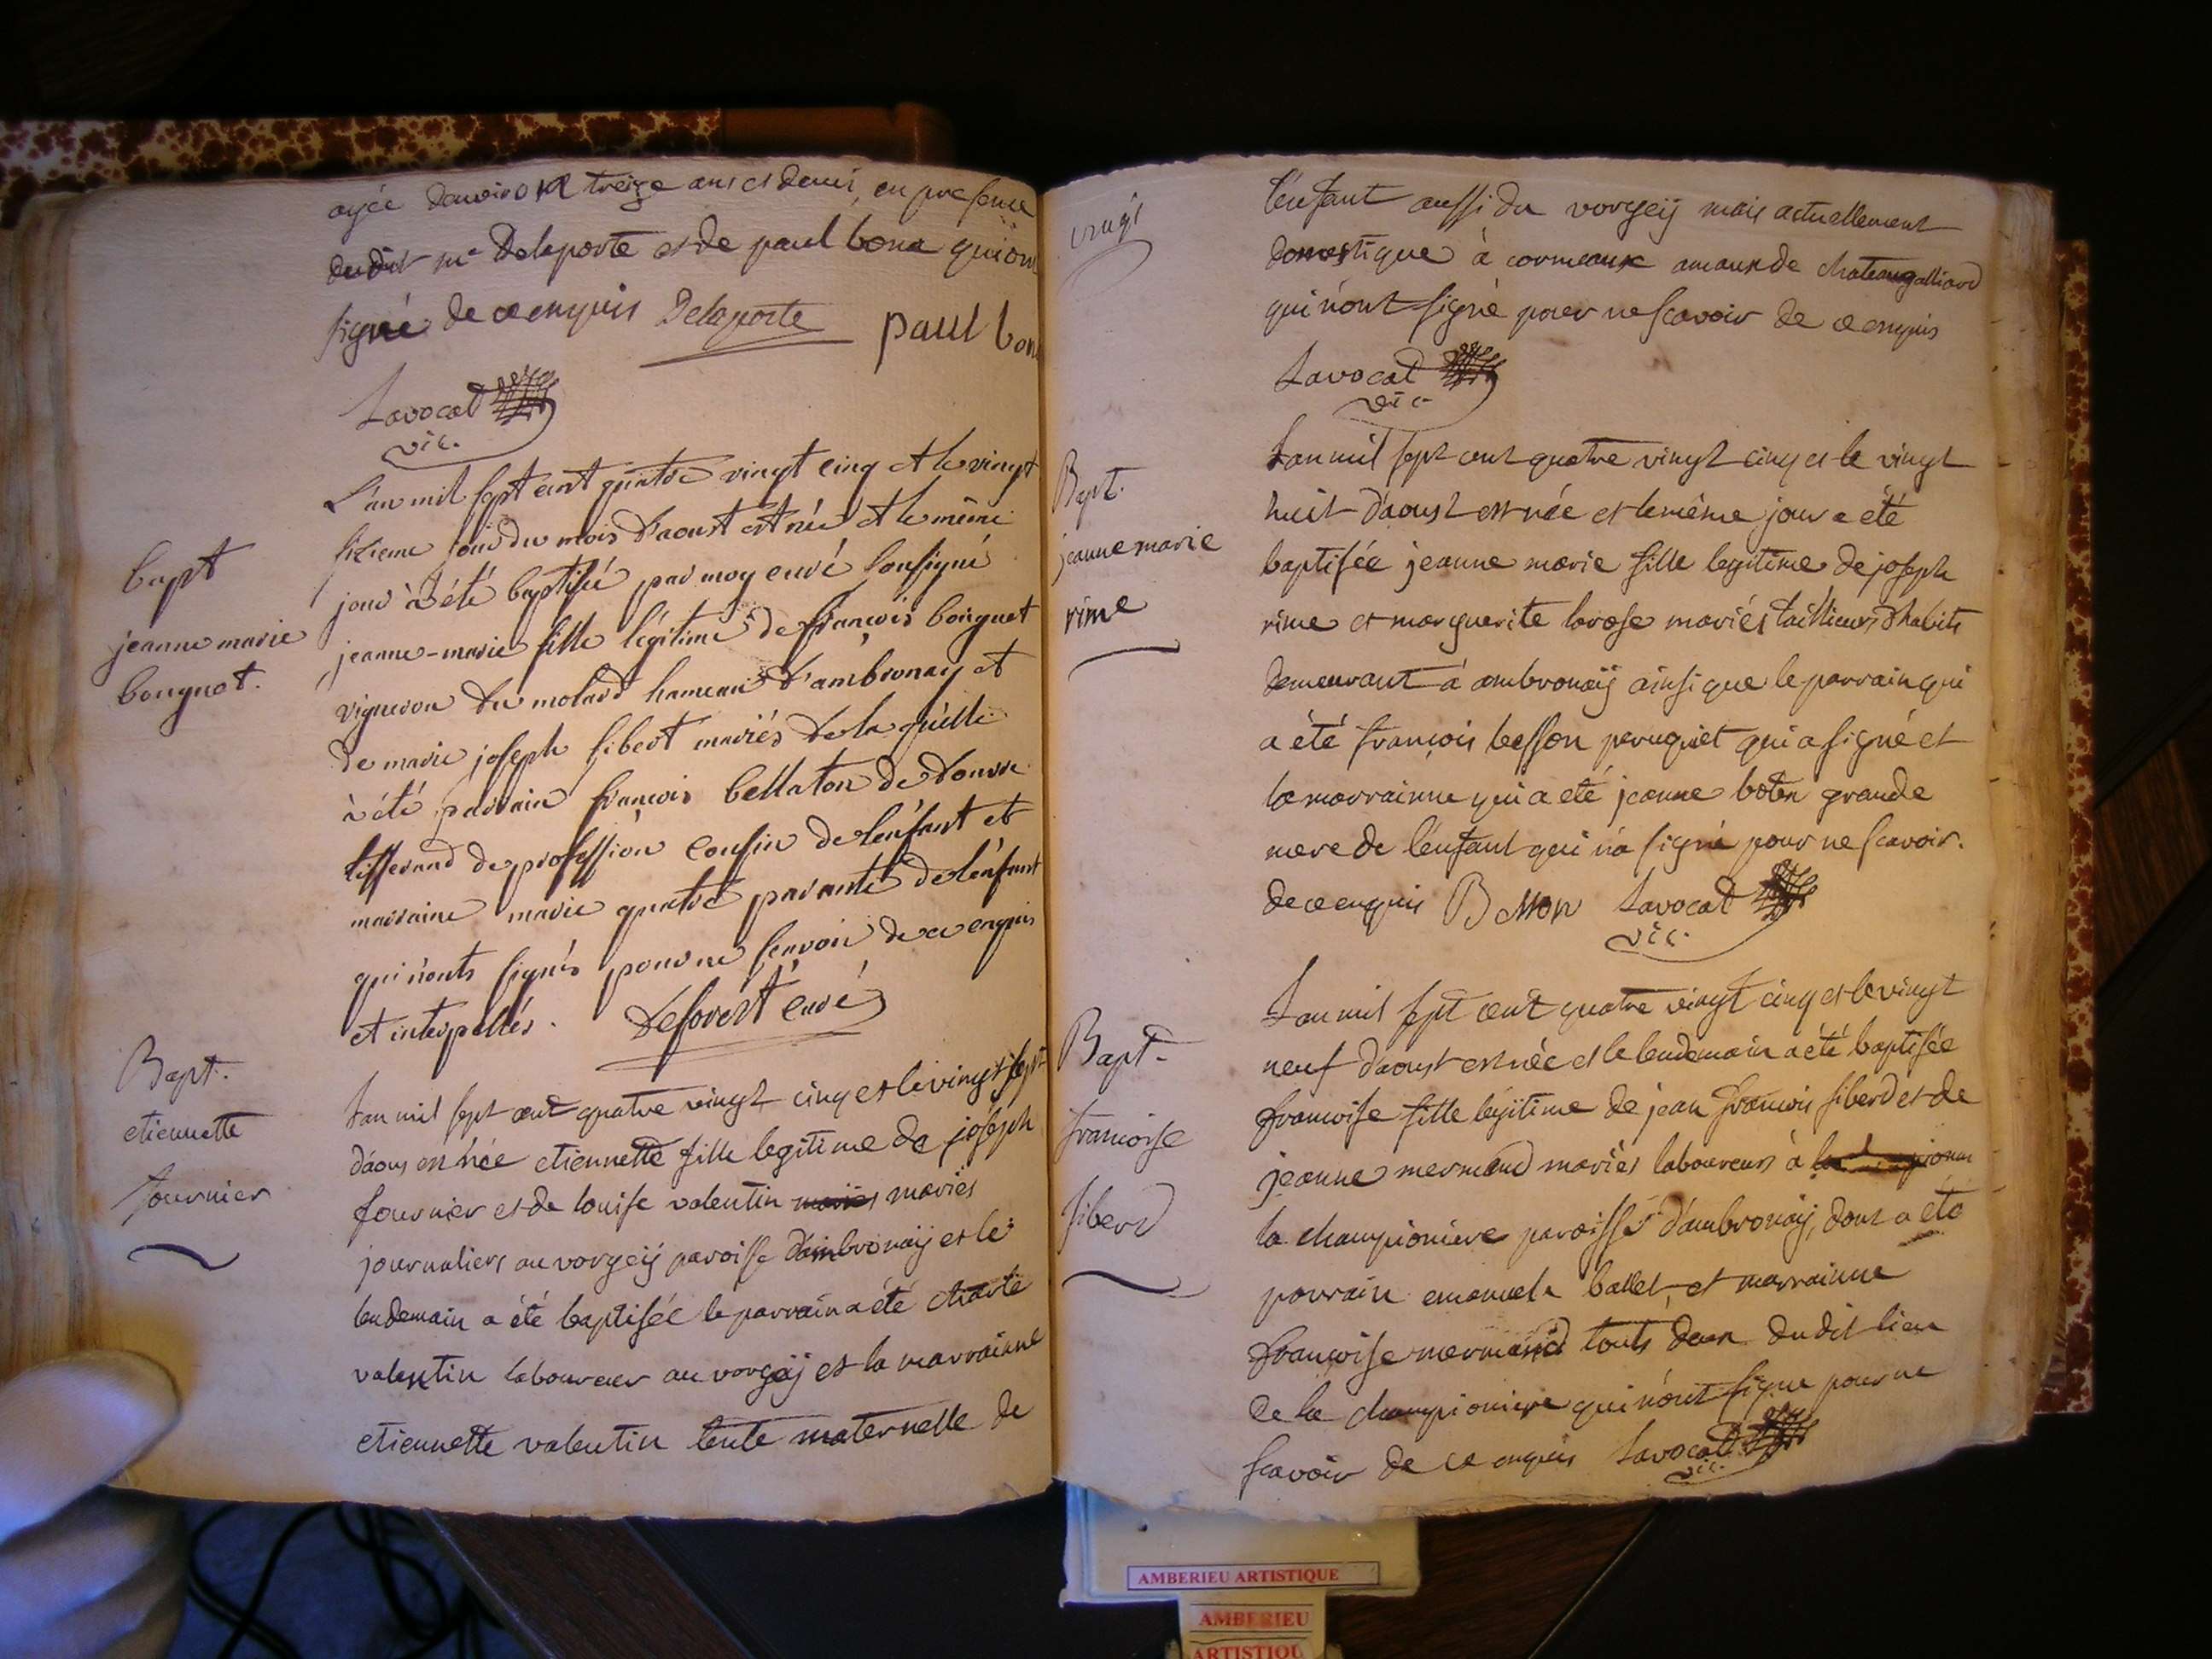 agée d'environ treize ans et demi, en presence
dudit mr Delaporte et de paul bona qui ont
signé de ce enquis Delaporte paul bon
Lavocat
vic.
bapt
jeanne marie
bouguet.
L'an mil sept cent quatre vingt cinq et le vingt
sixieme jour du mois d'aoust est née et le même
jour à été baptisée par moy curé soussigné
jeanne-marie fille légitime de françois boiguet
vigneron du molard hameau d'ambronay et
de marie joseph sibert mariés de la quelle
à été parrain françois bellaton de douvre
tisserand de profession cousin de lenfant et
marraine marie quatre parante de lenfant
qui n'onts signés pour ne sçavoir de ce enquis
et interpellés. Deforest curé
Bapt.
etiennette
fournier
Lan mil sept cent quatre vingt cinq et le vingt sept
d'aous est née etiennette fille legitime de joseph
fournier et de louise valentin mariés mariés
journaliers au vorgeij paroisse d'ambronaij et le
lendemain a été baptisée le parrain a été charle
valentin laboureur au vorgeij et la marrainne
etiennette valentin tente maternelle de
vingt
l'enfant aussi du vorgeij mais actuellement
domestique à cormeaux amaux de chateaugalliard
qui n'ont signé pour ne scavoir de ce enquis
Lavocat
vic.
Bapt.
jeanne marie
rime
Lan mil sept cent quatre vingt cinq et le vingt
huit d'aoust est née et le même jour a été
baptisée jeanne marie fille legitime de joseph
rime et marguerite larose mariés taillieurs d'habits
demeurant à ambronaij ainsi que le parrain qui
a été françois besson peruquiet qui a signé et
la marrainne qui a eté jeanne boten grande
mere de l'enfant qui n'a signé pour ne scavoir.
de ce enquis Besson Lavocat
vic.
Bapt.
francoise
siberd
Lan mil sept cent quatre vingt cinq et le vingt
neuf d'aoust est née et le lendemain a été baptisée
francoise fille legitime de jean francois siberd et de
jeanne mermand mariés laboureurs à
la championiere paroisse d'ambronaij, dont a été
parrain emanuel ballet, et marrainne
françoise mermand touts deux dudit lieu
de la championiere qui n'ont signe pour ne
scavoir de ce enquis Lavocat
vic.
AMBERIEU ARTISTIQUE
AMBERIEU
ARTISTIQU